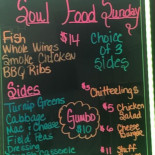 Soul Food Sunday
Fish $14
Whole Wings
Smoke Chicken
BBQ Ribs
Choice of 3 sides
Sides
Turnip Greens
Cabbage
Mac & Cheese
Field Peas
Dressing
Casserole
Gumbo $10
Chitterlings
$5 Chicken Salad
$6 Cheese Burger
$11